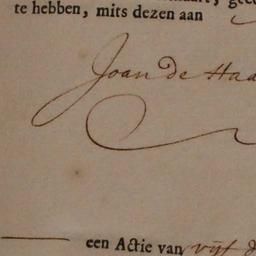 te hebben, mits dezen aan
Joan de Haa
een Actie van vijf d